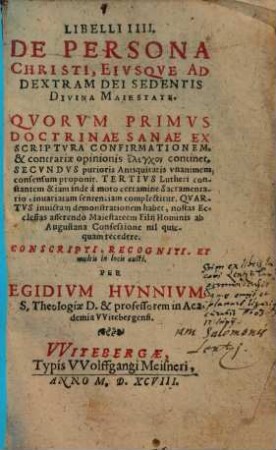 LIBELLI IIII.
DE PERSONA
CHRISTI, EIVSQVE AD
DEXTRAM DEI SEDENTIS
DIVINA MAIESTATE.
QVORVM PRIMVS
DOCTRINAE SANAE EX
SCRIPTVRA CONFIRMATIONEM,
& contrariæ opinionis ἔλεγχον continet,
SECVNDVS purioris Antiquitatis vnanimem,
consensum proponit. TERTIVS Lutheri con-
stantem & iam inde à moto certamine Sacramenta-
rio inuariatam sententiam complectitur. QVAR-
TVS inuictam demonstrationem habet, nostras Ec-
clesias asserendo Maiestatem Filii Hominis ab
Augustana Confessione nil quic-
quam recedere.
CONSCRIPTI, RECOGNITI, ET
multis in locis aucti.
PER
EGIDIVM HVNNIVM
S. Theologiæ D. & professorem in Aca-
demia VVitebergensi.
VVITEBERGÆ,
Typis VVolffgangi Meisneri,
ANNO M. D. XCVIII.
Salomonis